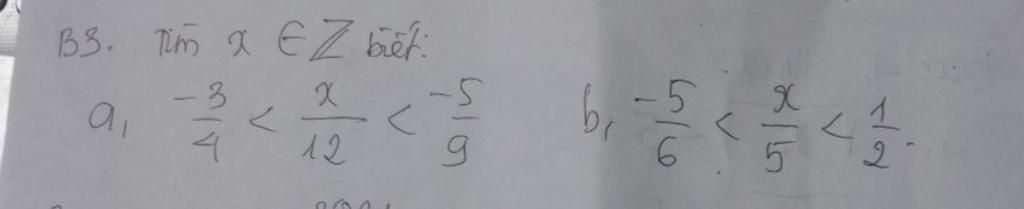 B3. Tìm x ∈ Z biết:
a, -3/4 < x/12 < -5/9 b, -5/6 < x/5 < 1/2.